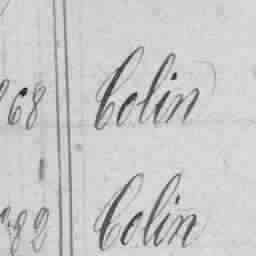 68 Colin
Colin